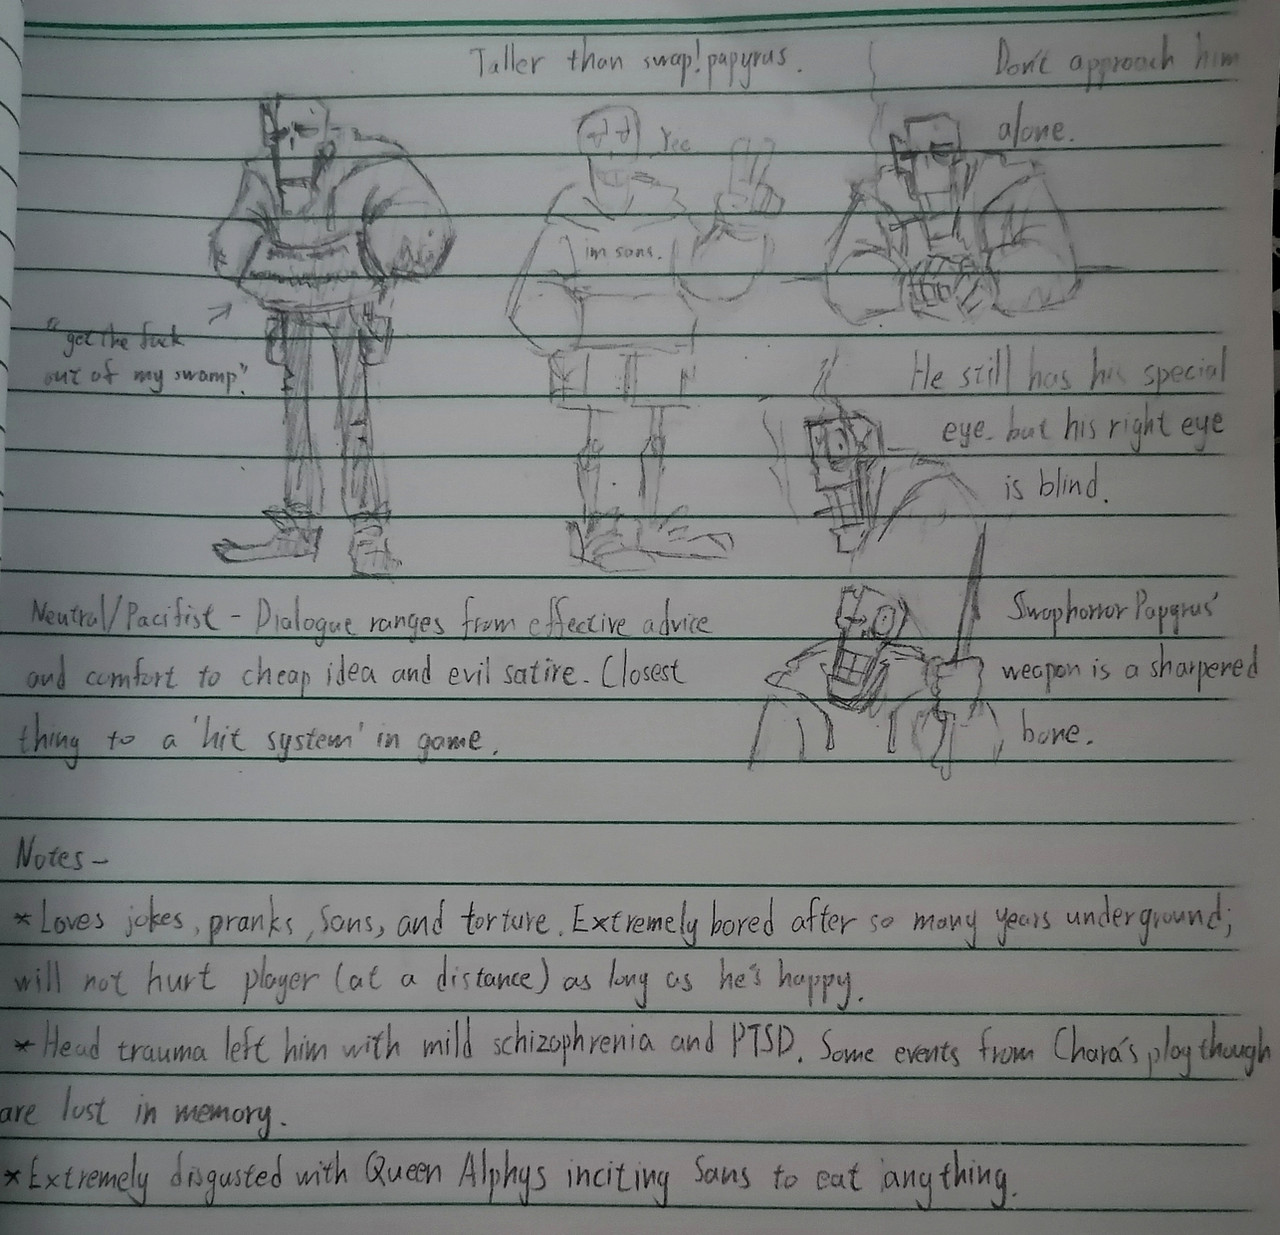 Taller than swap!papyrus.
Don't approach him
alone.
Yee
im sans.
"get the fuck
out of my swamp."
He still has his special
eye. but his right eye
is blind.
Neutral/Pacifist - Dialogue ranges from effective advice
and comfort to cheap idea and evil satire. Closest
thing to a 'hit system' in game.
Swaphorror Papyrus'
weapon is a sharpered
bone.
Notes-
*Loves jokes, pranks, Sans, and torture. Extremely bored after so many years underground;
will not hurt player (at a distance) as long as he's happy.
*Head trauma left him with mild schizophrenia and PTSD. Some events from Chara's playthough
are lost in memory.
*Extremely disgusted with Queen Alphys inciting Sans to eat anything.